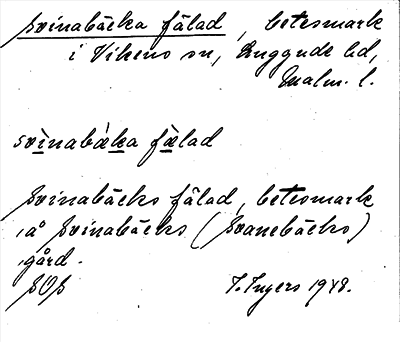 Svinabäcka fälad, betesmark
i Vikens sn, Luggude hd,
Malm. l.
svìnabàka fæ̀lad
Svinabäcks fälad, betesmark
å Svinabäcks (Svanebäcks)
gård.
SOS I. Ingers 1948.